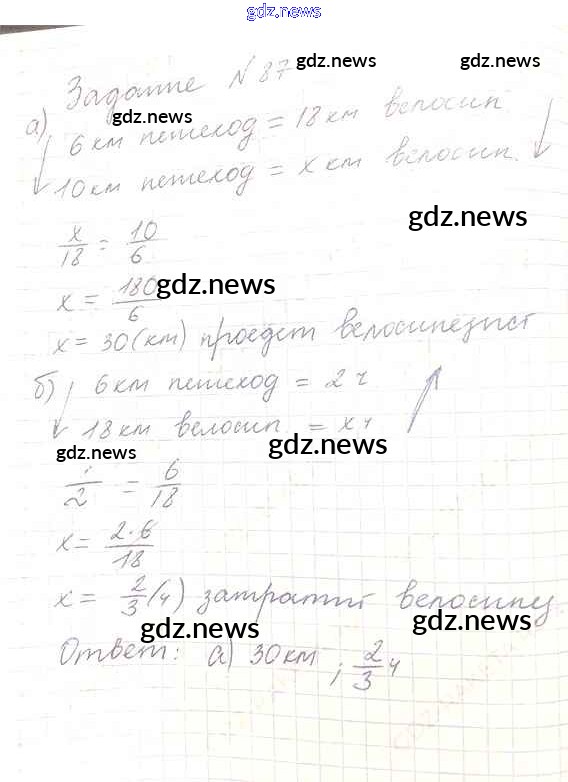 gdz.news
Задание № 87
gdz.news
gdz.news
gdz.news
а) 6 км пешеход = 18 км велосип.
10 км пешеход = x км велосип.
gdz.news
x/18 = 10/6
gdz.news
x = 180/6
x = 30 (км) проедет велосипедист
б) 6 км пешеход = 2 ч
18 км велосип. = x ч
gdz.news
gdz.news
/2 = 6/18
x = 2·6/18
x = 2/3 (ч) затратит велосипед
gdz.news
gdz.news
Ответ: а) 30 км ; 2/3 ч
gdz.news
gdz.news